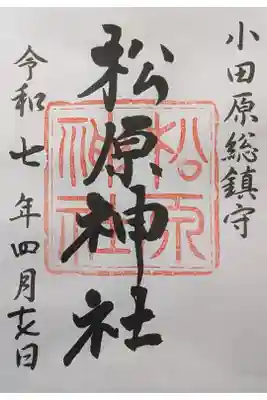 小田原総鎮守
松原神社
松原
神社
令和七年四月十七日